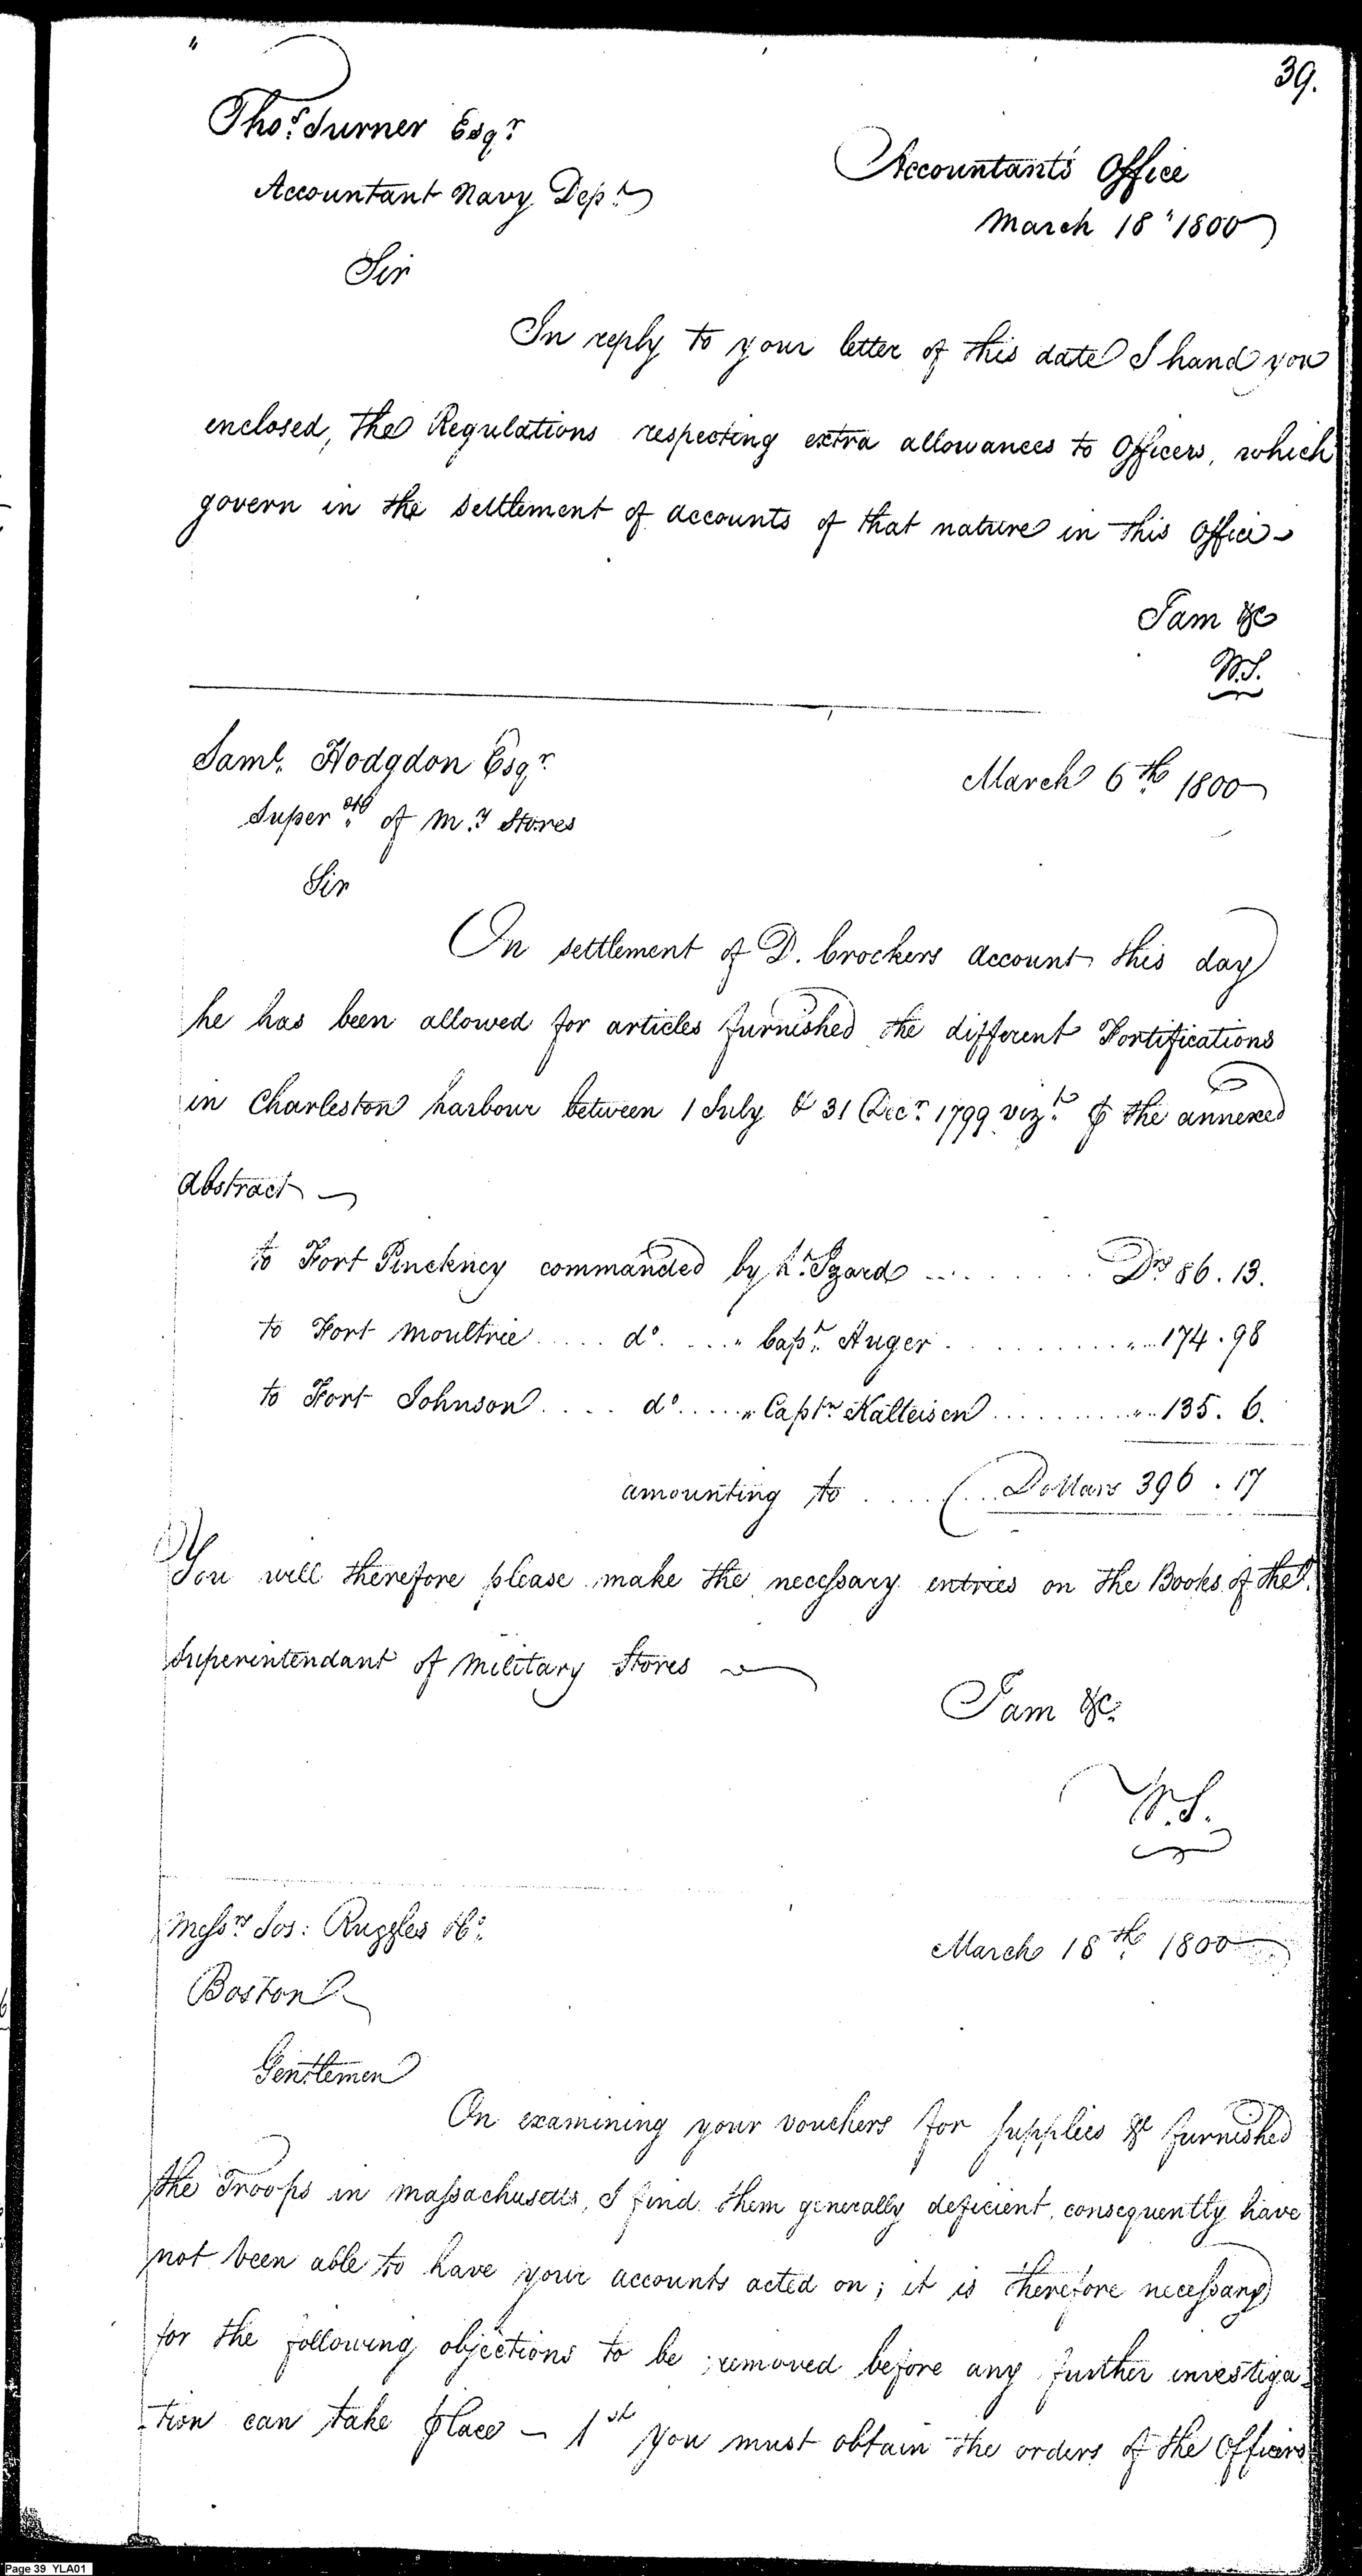 39.
Thos. Turner Esqr
Accountant Navy Dept
Accountants Office
March 18 1800
Sir
In reply to your letter of this date I hand you
enclosed, the Regulations respecting extra allowances to Officers, which
govern in the settlement of accounts of that nature in this Office
I am &c
W.S.
Saml. Hodgdon Esqr
Supert of My Stores
March 6th 1800
Sir
On settlement of D. Crockers account this day
he has been allowed for articles furnished the different Fortifications
in Charleston harbour between 1 July & 31 Decr 1799 vizt ⅌ the annexed
abstract
to Fort Pinckney commanded by Lt. Izard ......... Drs 86.13.
to Fort Moultrie .... do. .... " Capt. Huger .......... " 174.98
to Fort Johnson .... do ..... " Captn Kalteisen .......... " 135. 6.
amounting to .... Dollars 396.17
You will therefore please make the necessary entries on the Books of the
Superintendant of Military Stores
I am &c.
W.S.
Messrs Jos: Ruggles &Co.
Boston
March 18th. 1800
Gentlemen
On examining your vouchers for supplies &c furnished
the Troops in Massachusetts, I find them generally deficient, consequently have
not been able to have your accounts acted on; it is therefore necessary
for the following objections to be removed before any further investiga-
-tion can take place - 1st You must obtain the orders of the Officers
Page 39 YLA01